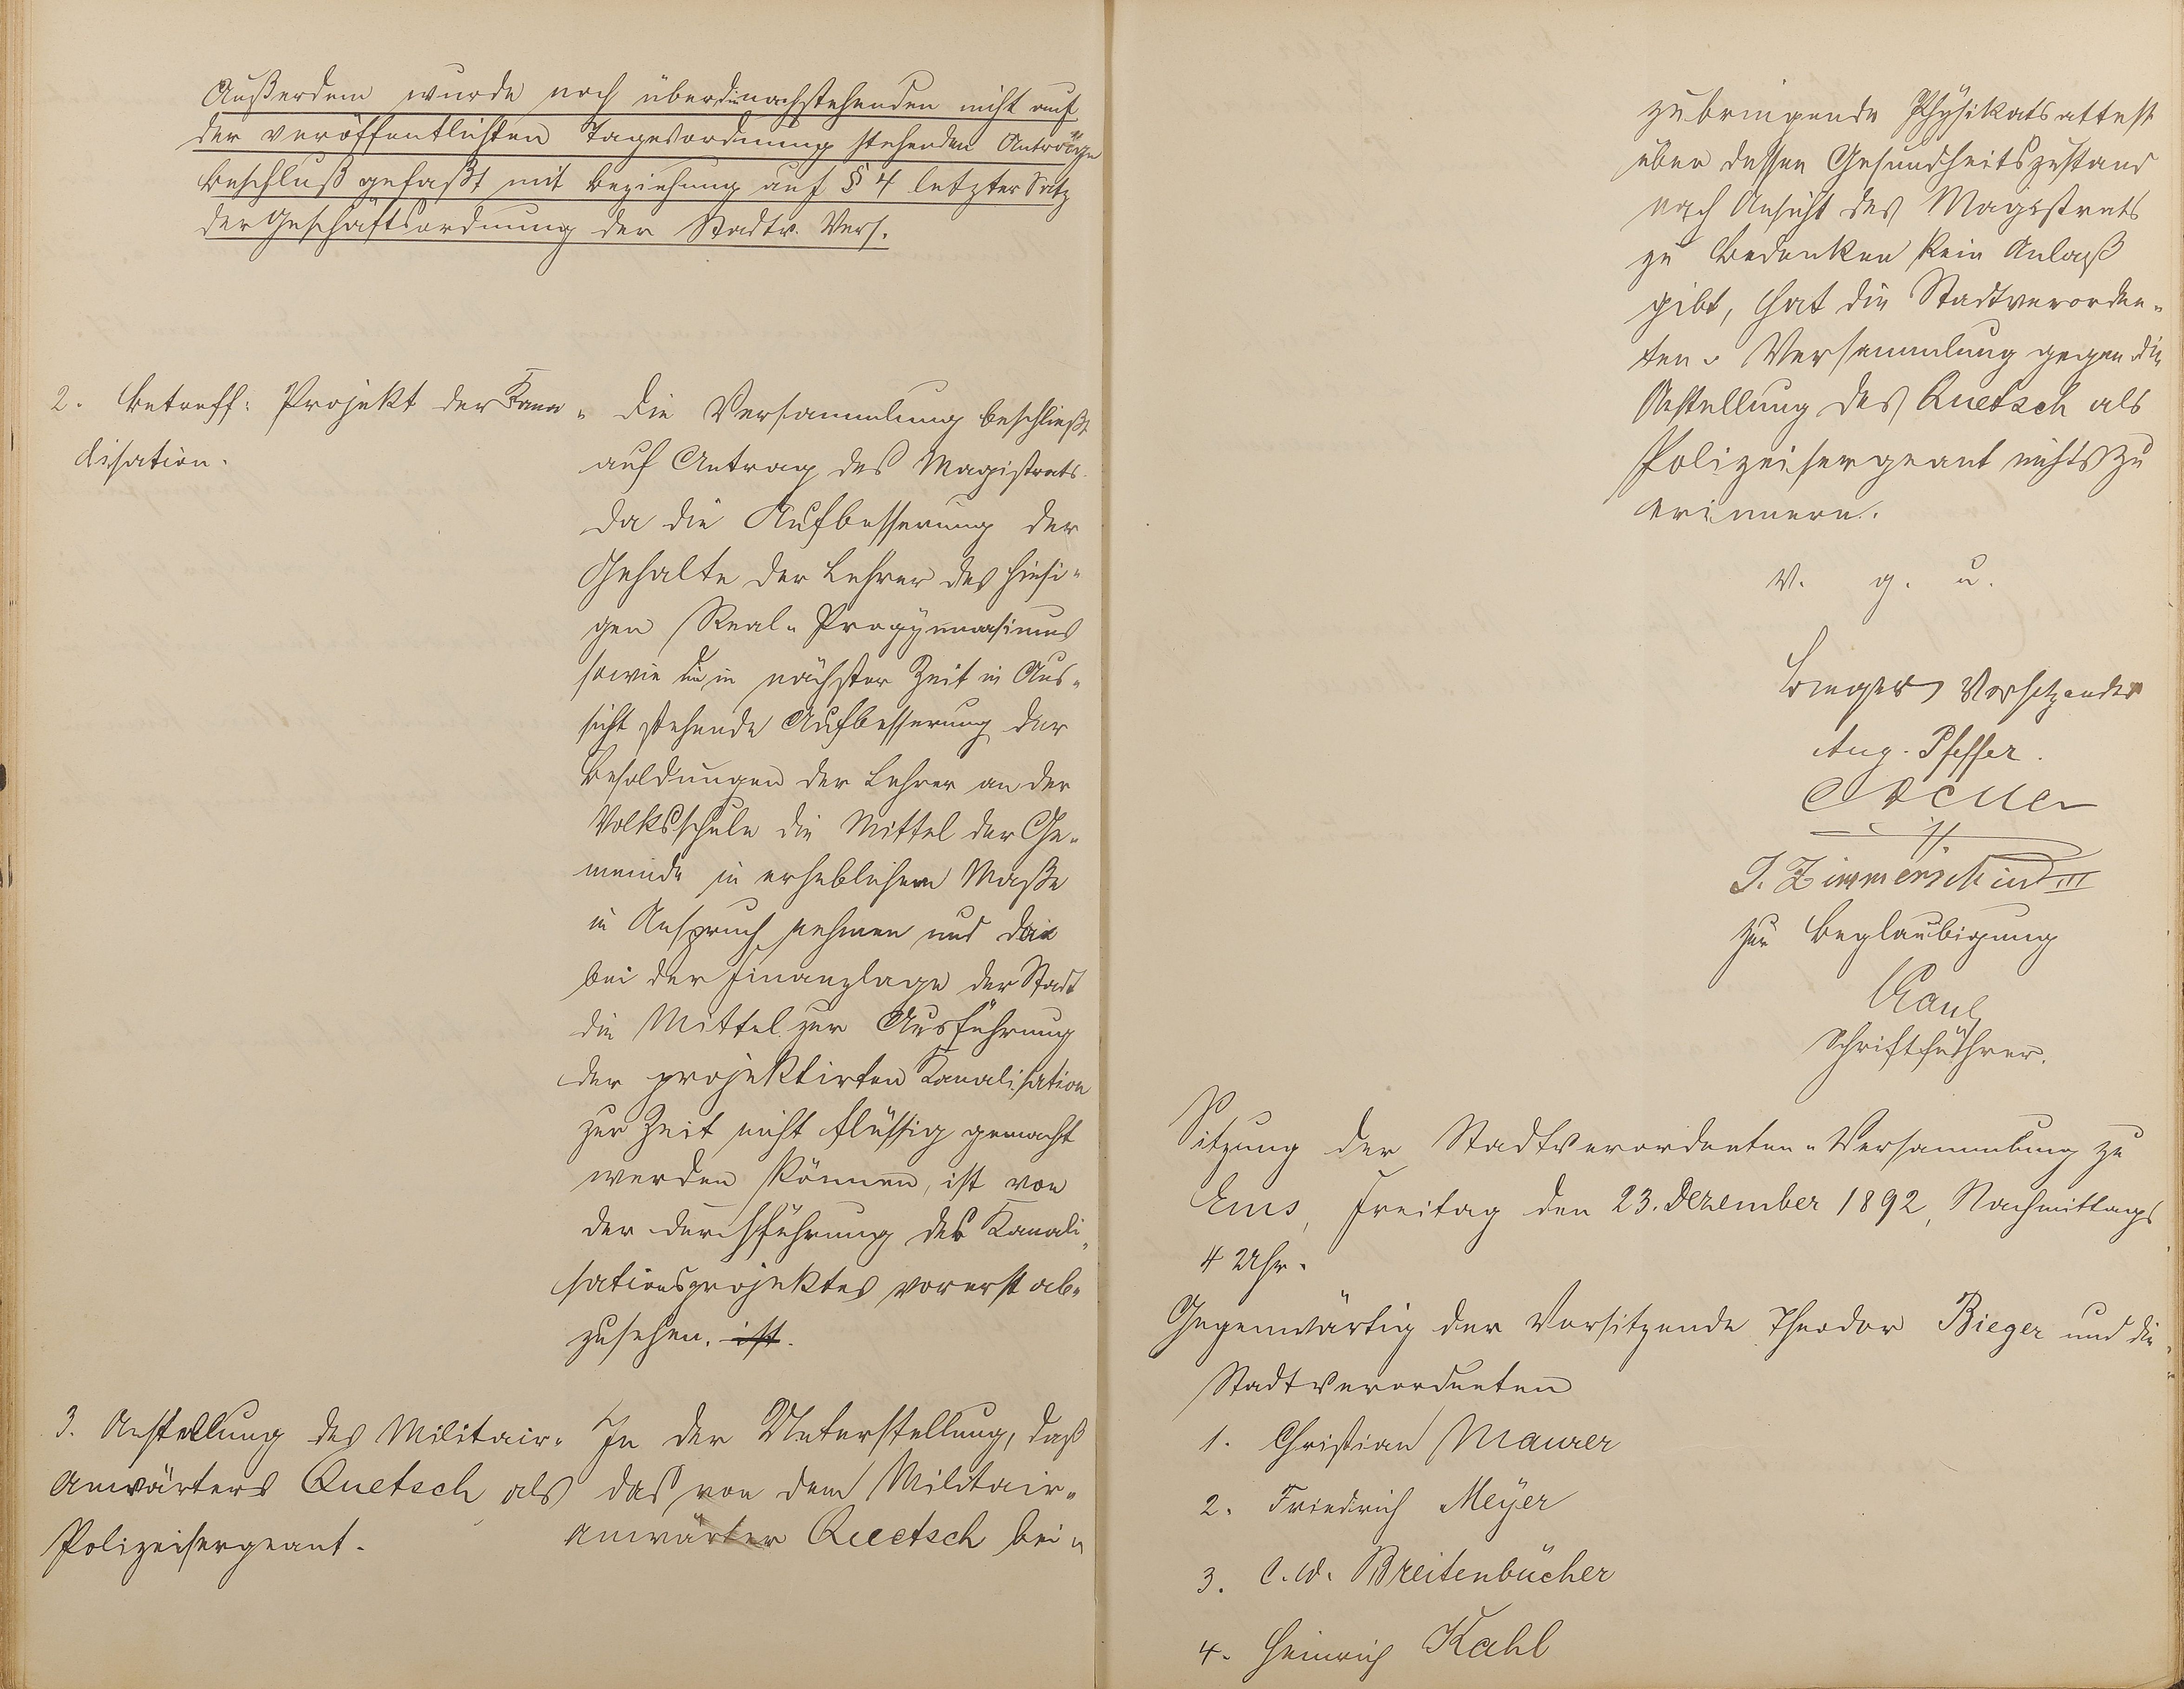 Außerdem wurde noch über die nachstehenden nicht auf
der veröffentlichten Tagesordnung stehenden Anträge
Beschluß gefaßt mit Beziehung auf § 4 letzter Satz
der Geschäftsordnung der Stadtv. Vers.
2. Betreff: Projekt der Kana-
lisation.
Die Versammlung beschließt
auf Antrag des Magistrats
da die Aufbesserung der
Gehalte der Lehrer des hiesi-
gen Real-Progymnasiums
sowie die in nächster Zeit in Aus-
sicht stehende Aufbesserung der
Besoldungen der Lehrer an der
Volksschule die Mittel der Ge-
meinde in erheblichem Maße
in Anspruch nehmen und da
bei der Finanzlage der Stadt
die Mittel zur Ausführung
der projektirten Kanalisation
zur Zeit nicht flüssig gemacht
werden können, ist von
der Durchführung des Kanali-
sationsprojektes vorerst ab-
zusehen. ist.
3. Anstellung des Militair-
Anwärters Quetsch als
Polizeisergeant.
In der Unterstellung, daß
das von dem Militair-
anwärter Quetsch bei-
zubringende Physikatsattest
über dessen Gesundheitszustand
nach Ansicht des Magistrats
zu Bedenken kein Anlaß
gibt, hat die Stadtverordne-
ten-Versammlung gegen die
Anstellung des Quetsch als
Polizeisergeant nichts zu
erinnern.
v. g. u.
Vorsitzender
Aug. Pfeffer.
J. Zimmerschied III
Zur Beglaubigung
Kaul
Schriftführer.
Sitzung der Stadtverordneten-Versammlung zu
Ems, Freitag den 23. Dezember 1892, Nachmittags
4 Uhr.
Gegenwärtig der Vorsitzende Theodor Bieger und die
Stadtverordneten
1. Christian Maurer
2. Friedrich Meyer
3. C. W. Breitenbücher
4. Heinrich Kahl